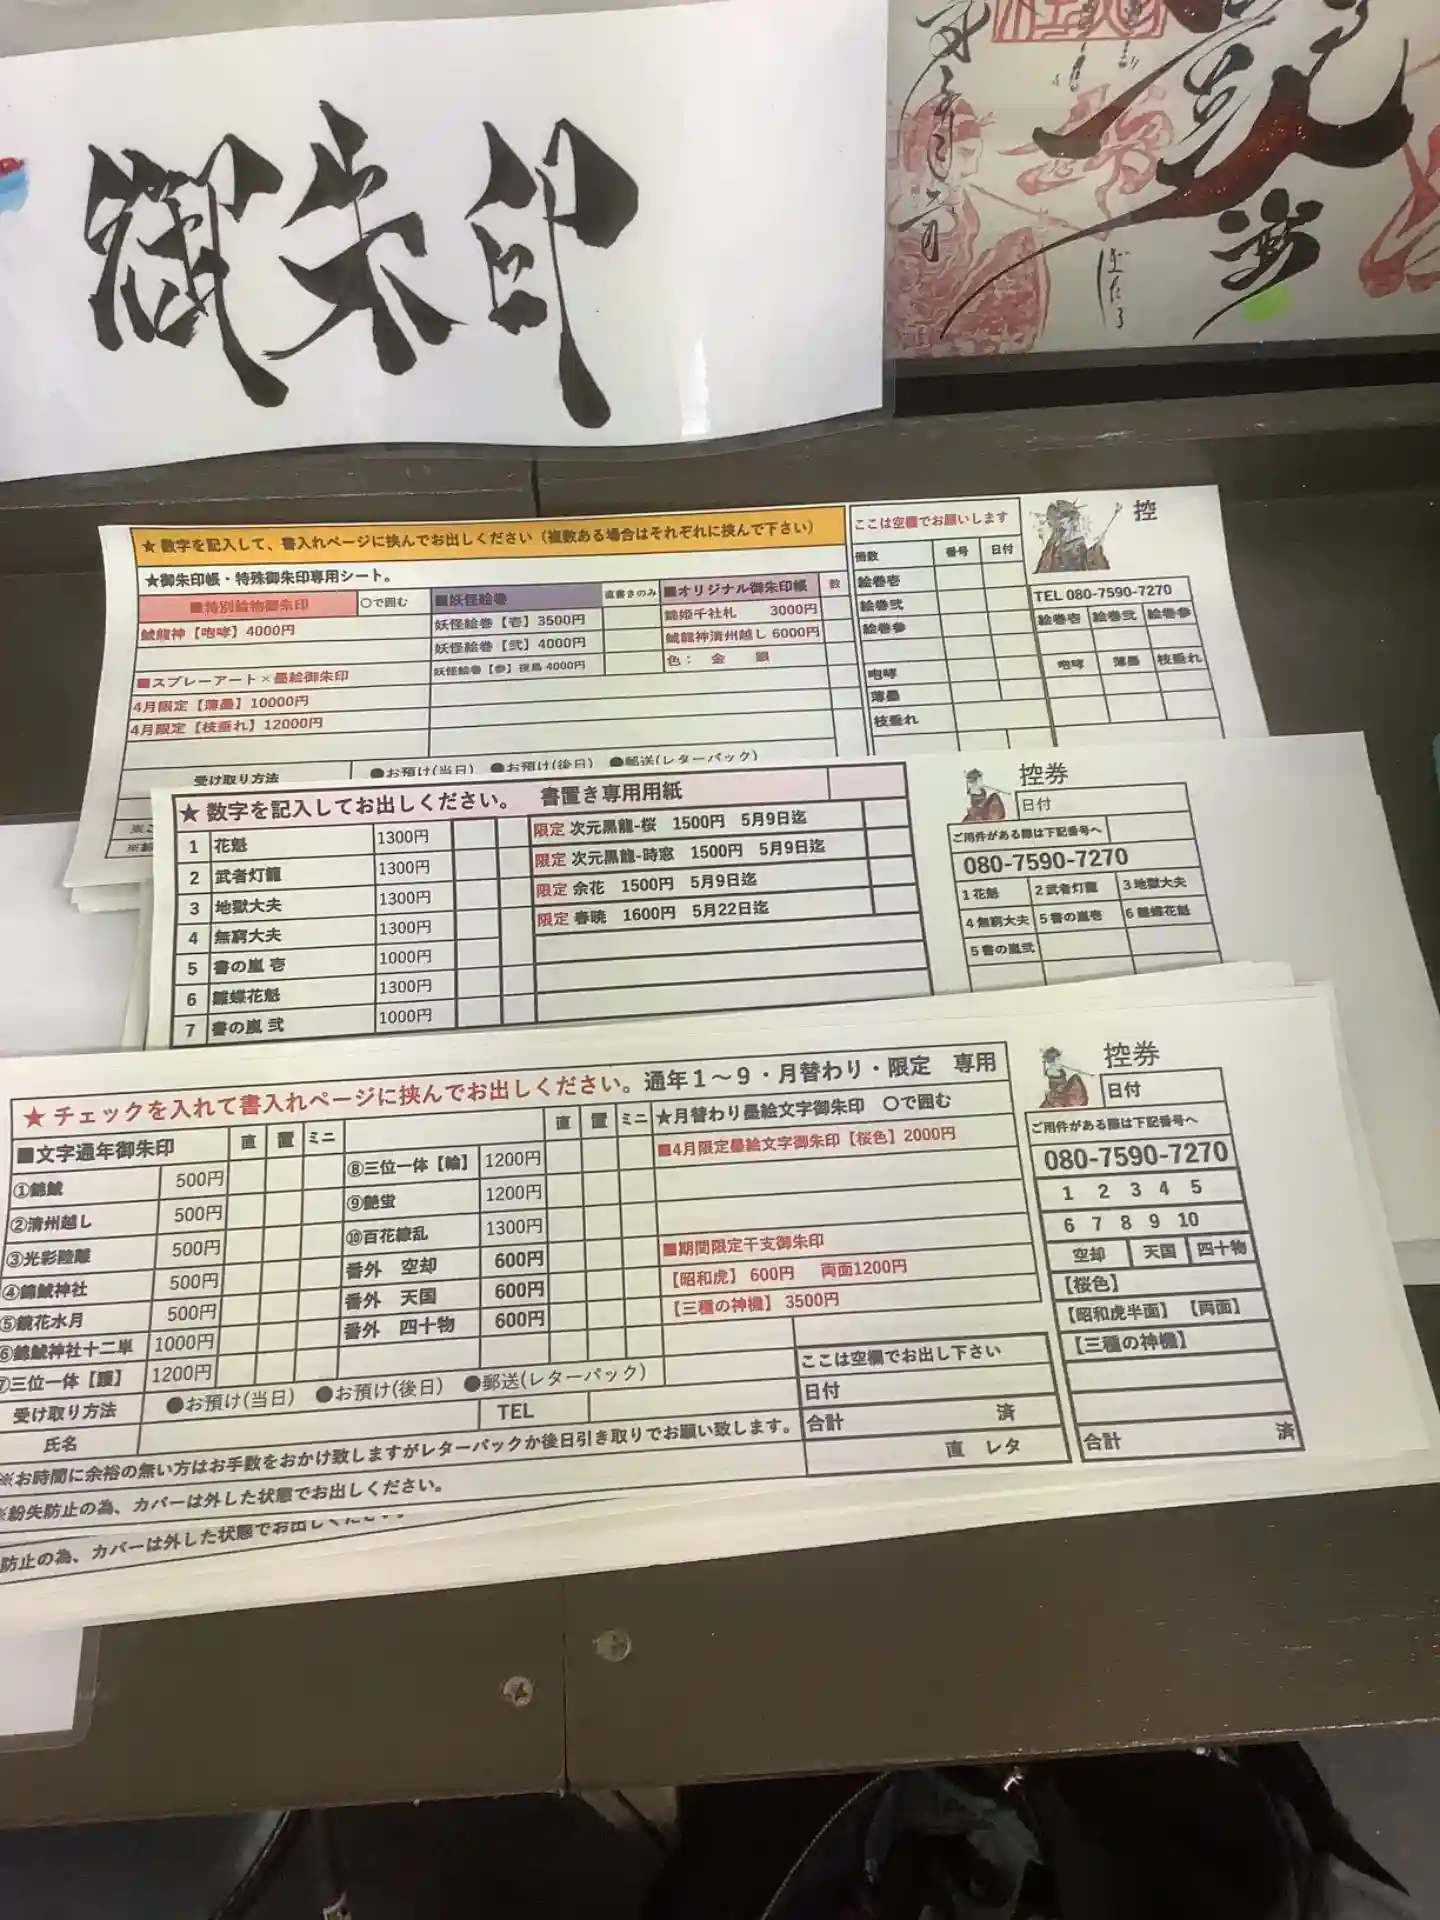 御朱印
★ 数字を記入して、書入れページに挟んでお出しください（複数ある場合はそれぞれに挟んで下さい）
★御朱印帳・特殊御朱印専用シート。
■特別絵物御朱印 〇で囲む
鯱龍神【咆哮】4000円
■スプレーアート×墨絵御朱印
4月限定【薄墨】10000円
4月限定【枝垂れ】12000円
■妖怪絵巻 直書きのみ
妖怪絵巻【壱】3500円
妖怪絵巻【弐】4000円
妖怪絵巻【参】夜鳥 4000円
■オリジナル御朱印帳 数
錦姫千社札 3000円
鯱龍神清州越し 6000円
色： 金 銀
受け取り方法 ●お預け(当日) ●お預け(後日) ●郵送(レターパック)
ここは空欄でお願いします
冊数 番号 日付
絵巻壱
絵巻弐
絵巻参
咆哮
薄墨
枝垂れ
控
TEL 080-7590-7270
絵巻壱 絵巻弐 絵巻参
咆哮 薄墨 枝垂れ
★ 数字を記入してお出しください。 書置き専用用紙
1 花魁 1300円
2 武者灯籠 1300円
3 地獄大夫 1300円
4 無窮大夫 1300円
5 書の嵐 壱 1000円
6 雛蝶花魁 1300円
7 書の嵐 弐 1000円
限定 次元黒龍-桜 1500円 5月9日迄
限定 次元黒龍-時窓 1500円 5月9日迄
限定 余花 1500円 5月9日迄
限定 春暁 1600円 5月22日迄
控券
日付
ご用件がある際は下記番号へ
080-7590-7270
1 花魁 2 武者灯籠 3 地獄大夫
4 無窮大夫 5 書の嵐壱 6 雛蝶花魁
5 書の嵐弐
★ チェックを入れて書入れページに挟んでお出しください。通年１～９・月替わり・限定 専用
■文字通年御朱印 直 置 ミニ
①錦鯱 500円
②清州越し 500円
③光彩陸離 500円
④錦鯱神社 500円
⑤鏡花水月 500円
⑥錦鯱神社十二単 1000円
⑦三位一体【護】 1200円
直 置 ミニ
⑧三位一体【輪】 1200円
⑨艶蛍 1200円
⑩百花繚乱 1300円
番外 空却 600円
番外 天国 600円
番外 四十物 600円
★月替わり墨絵文字御朱印 〇で囲む
■4月限定墨絵文字御朱印【桜色】2000円
■期間限定干支御朱印
【昭和虎】 600円 両面1200円
【三種の神機】 3500円
受け取り方法 ●お預け(当日) ●お預け(後日) ●郵送(レターパック)
氏名 TEL
※お時間に余裕の無い方はお手数をおかけ致しますがレターパックか後日引き取りでお願い致します。
※紛失防止の為、カバーは外した状態でお出しください。
ここは空欄でお出し下さい
日付
合計 済
直 レタ
控券
日付
ご用件がある際は下記番号へ
080-7590-7270
1 2 3 4 5
6 7 8 9 10
空却 天国 四十物
【桜色】
【昭和虎半面】 【両面】
【三種の神機】
合計 済
防止の為、カバーは外した状態でお出しください。